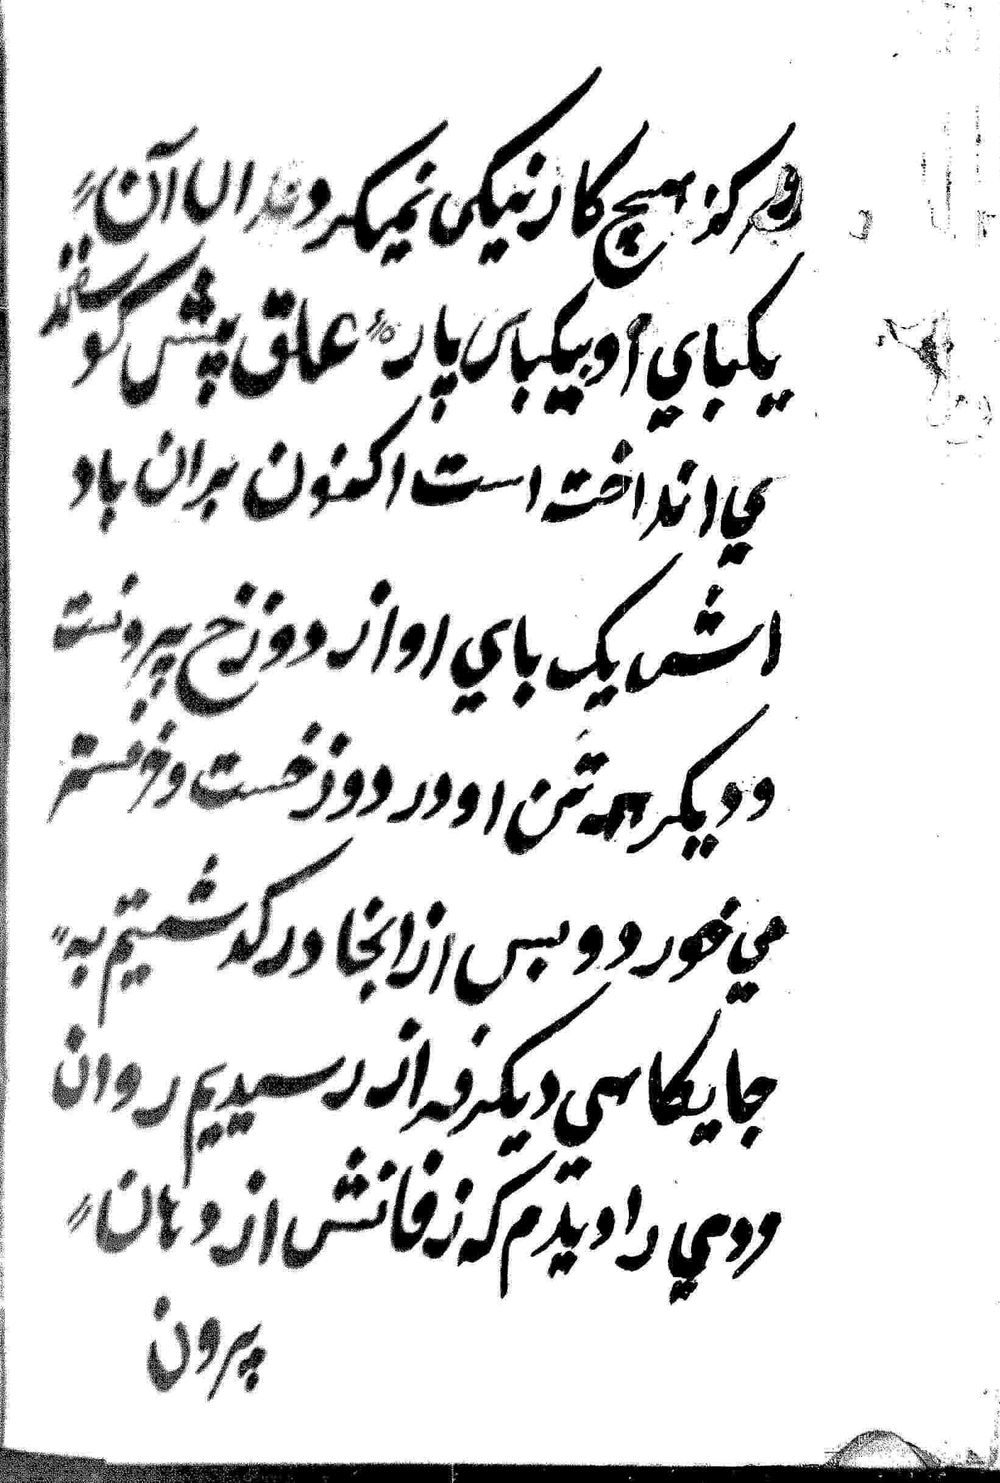 و هرگز هیچ کار نیکی نمیکرد و بغدر الا آن
یکبای او بیکبای پارهٔ علق پیش کوسفند
ي انداخته است اکنون بران باد
اشن یک بای او از دوزخ بیرونست
و دیکر همه تن او در دوزخست و خرفستر
می خورد و بس از انجا در کدشتیم به
جایکاهی دیکر فراز رسیدیم روان
مردمی را دیدم که زفانش از دهان
بیرون